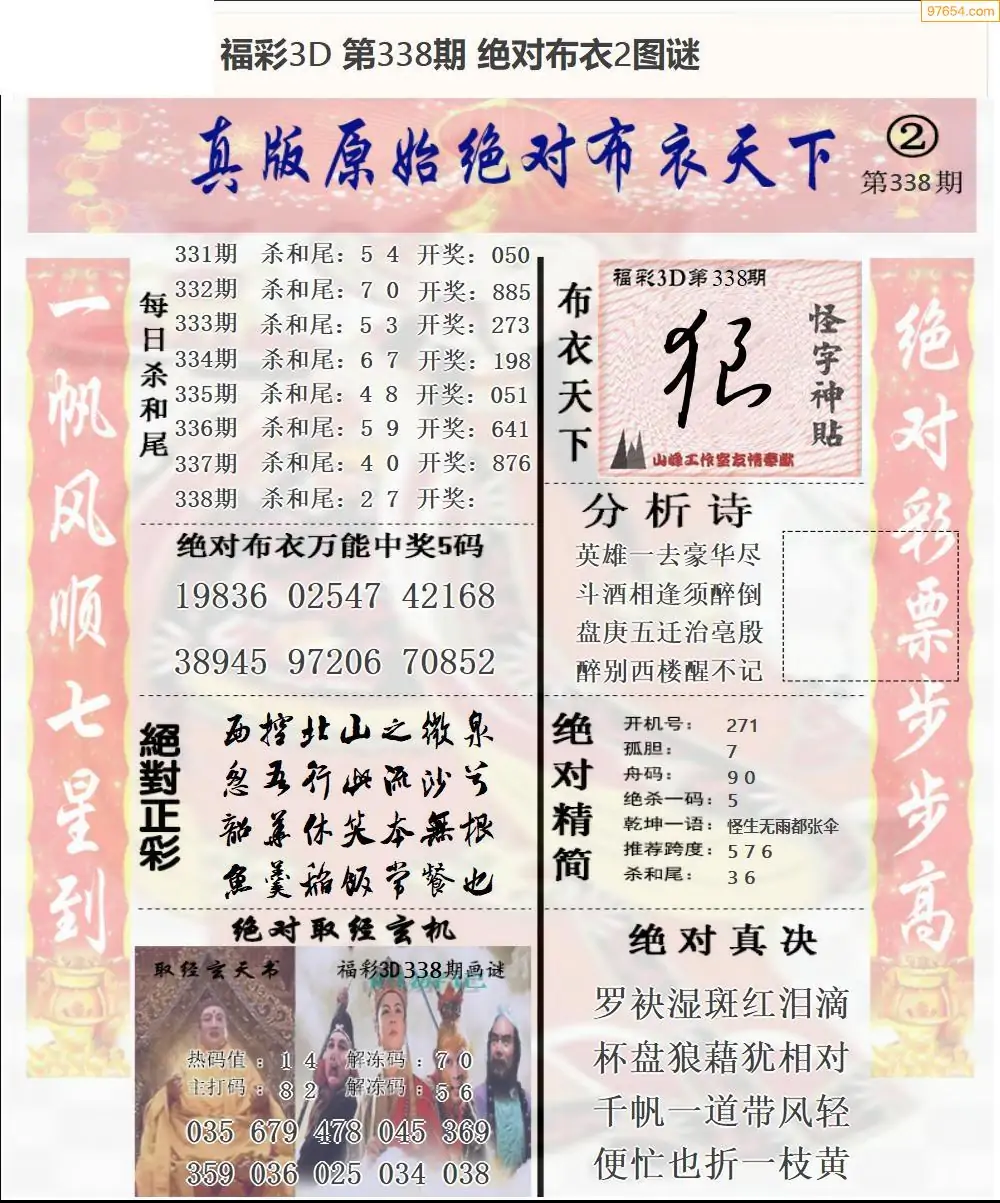 97654.com
福彩3D 第338期 绝对布衣2图谜
真版原始绝对布衣天下
②
第338期
一帆风顺七星到
每日杀和尾
331期 杀和尾：5 4 开奖：050
332期 杀和尾：7 0 开奖：885
333期 杀和尾：5 3 开奖：273
334期 杀和尾：6 7 开奖：198
335期 杀和尾：4 8 开奖：051
336期 杀和尾：5 9 开奖：641
337期 杀和尾：4 0 开奖：876
338期 杀和尾：2 7 开奖：
绝对布衣万能中奖5码
19836 02547 42168
38945 97206 70852
絕對正彩
西控北山之微泉
忽吾行此流沙兮
韶华休笑本無根
魚羹稻飯常餐也
绝对取经玄机
取经玄天书
福彩3D338期画谜
热码值：1 4 解冻码：7 0
主打码：8 2 解冻码：5 6
035 679 478 045 369
359 036 025 034 038
布衣天下
福彩3D第338期
狠
怪字神貼
山峰工作室友情奉献
分析诗
英雄一去豪华尽
斗酒相逢须醉倒
盘庚五迁治亳殷
醉别西楼醒不记
绝对精简
开机号： 271
孤胆： 7
舟码： 9 0
绝杀一码： 5
乾坤一语： 怪生无雨都张伞
推荐跨度： 5 7 6
杀和尾： 3 6
绝对真决
罗袂湿斑红泪滴
杯盘狼藉犹相对
千帆一道带风轻
便忙也折一枝黄
绝对彩票步步高